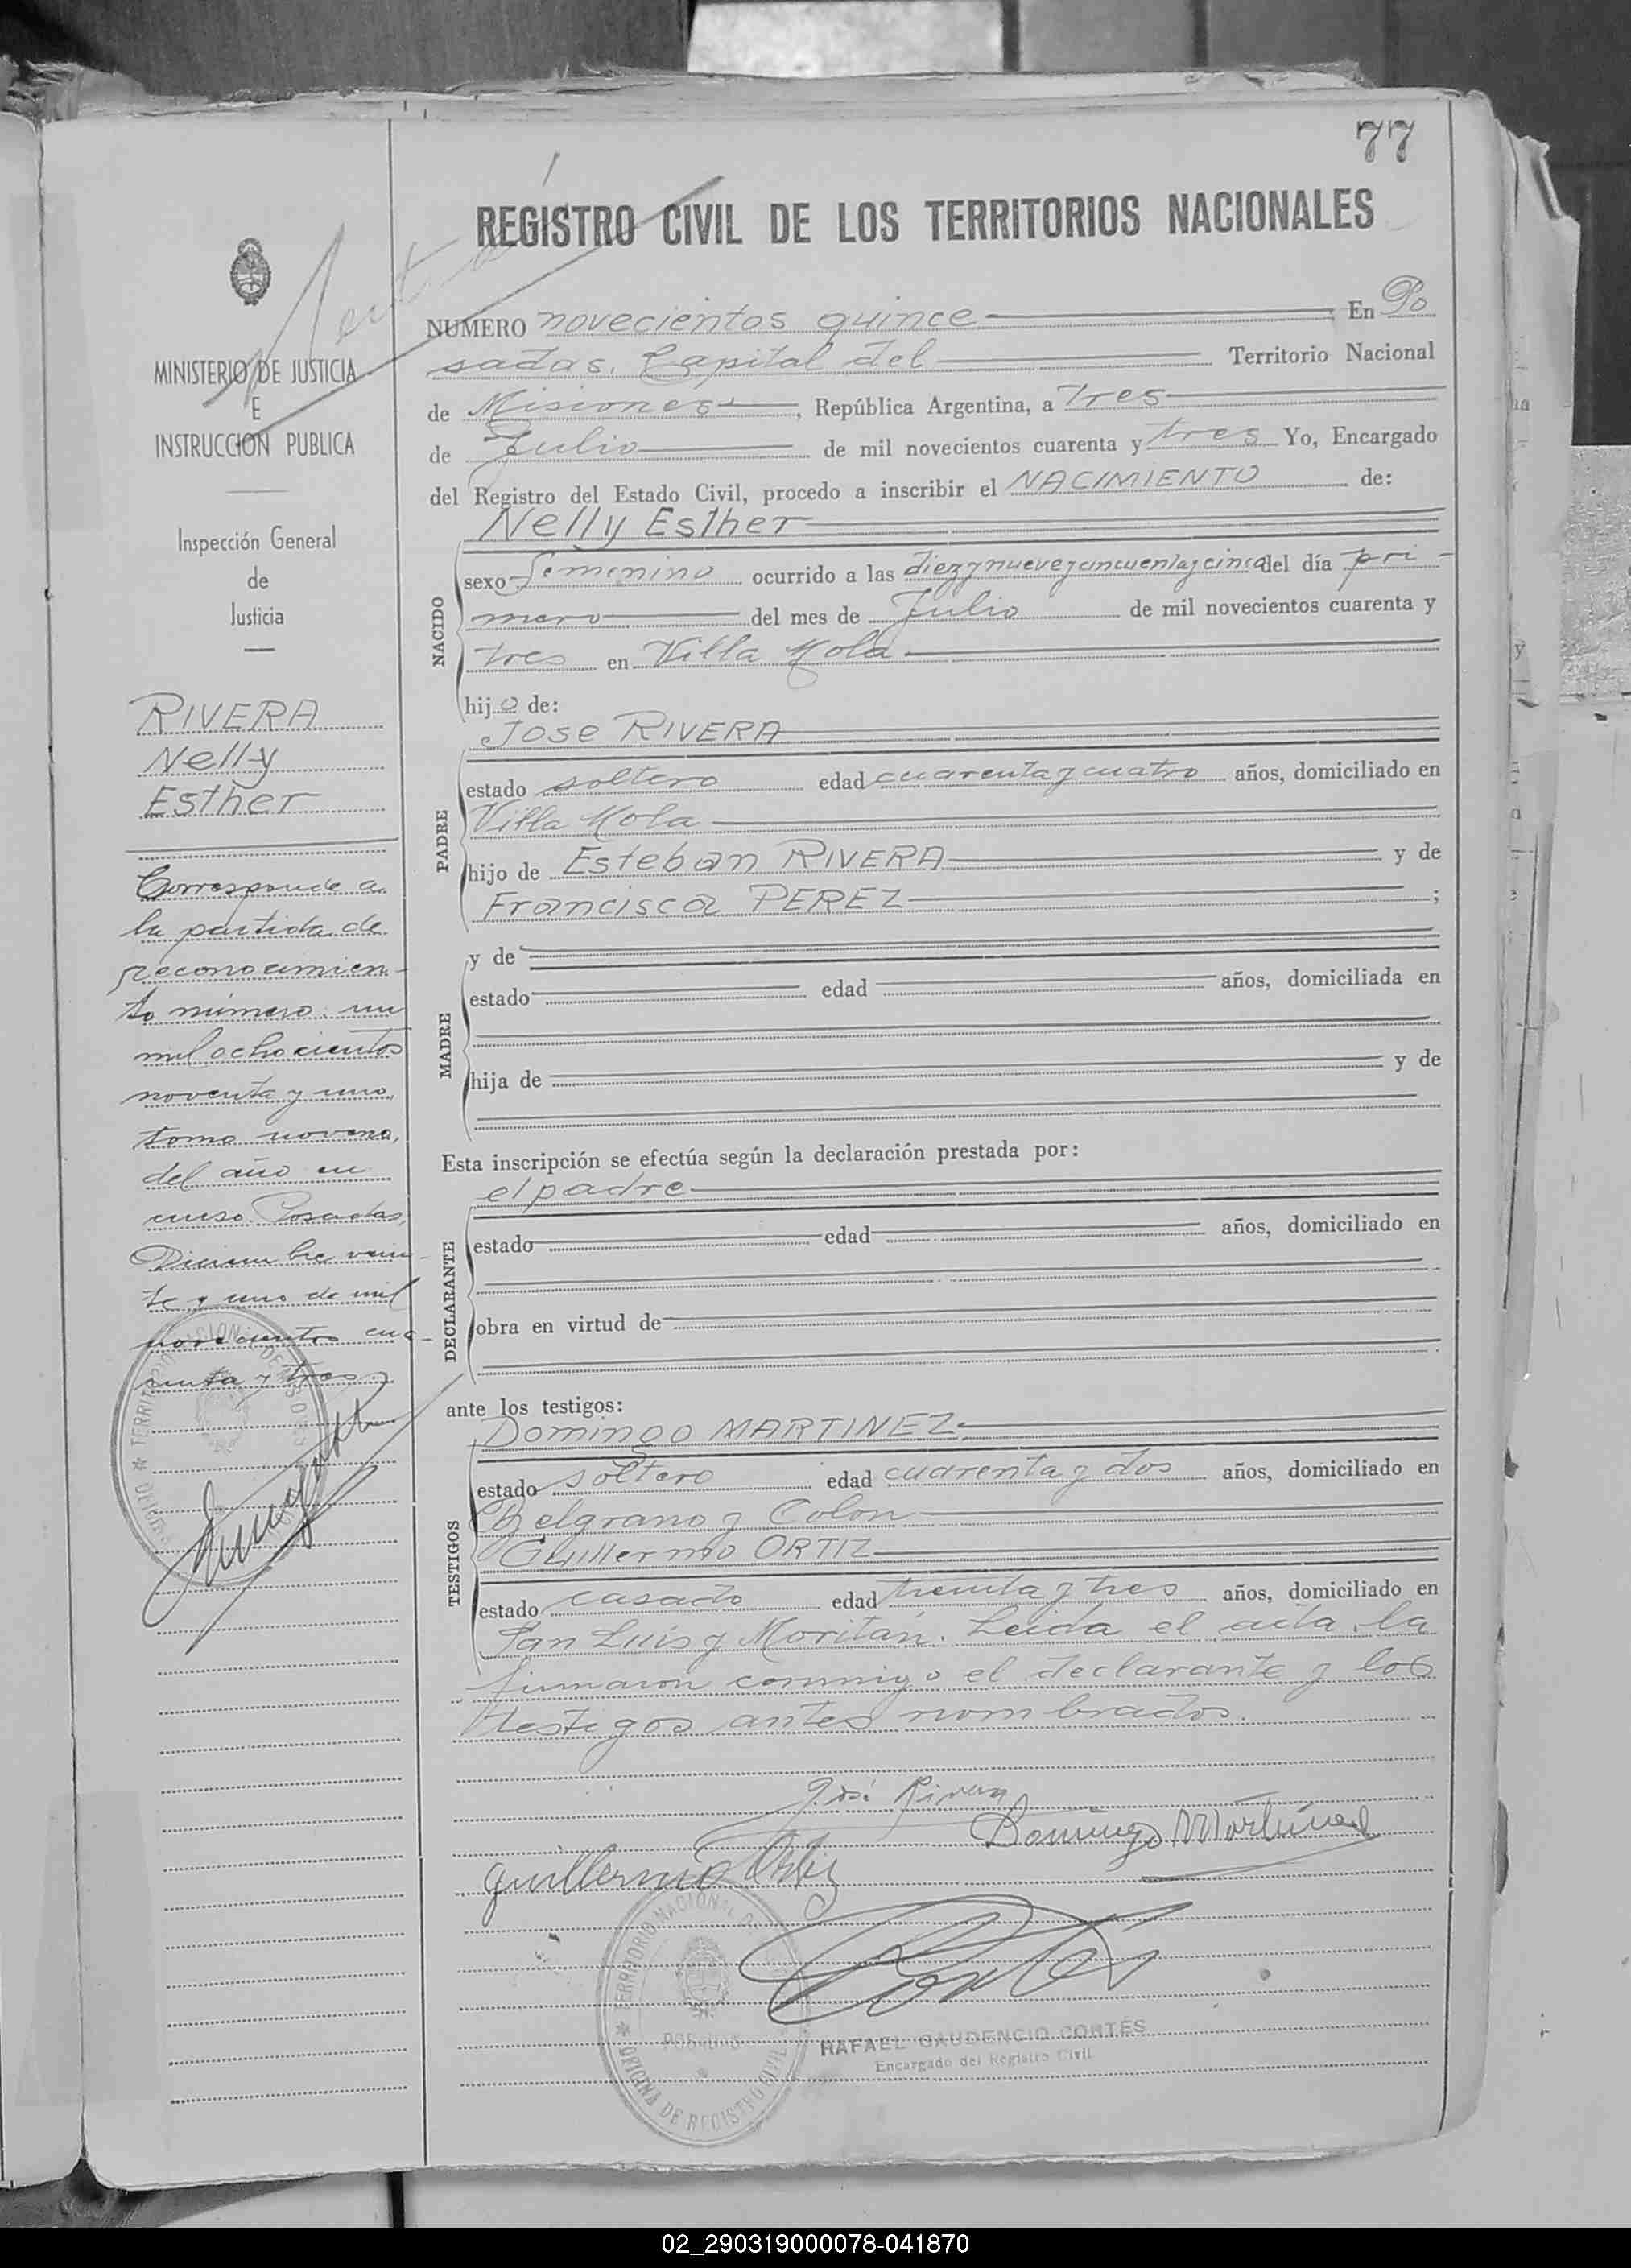 77
REGISTRO CIVIL DE LOS TERRITORIOS NACIONALES
NUMERO novecientos quince En Po
sadas, Capital del Territorio Nacional
de Misiones, República Argentina, a tres
de Julio de mil novecientos cuarenta y tres Yo, Encargado
del Registro del Estado Civil, procedo a inscribir el NACIMIENTO de:
NACIDO
Nelly Esther
sexo femenino ocurrido a las diez y nueve y cincuenta y cinco del día pri-
mero del mes de Julio de mil novecientos cuarenta y
tres en Villa Mola
hija de:
PADRE
Jose RIVERA
estado soltero edad cuarenta y cuatro años, domiciliado en
Villa Mola
hijo de Esteban RIVERA y de
Francisca PEREZ ;
MADRE
y de
estado edad años, domiciliada en
hija de y de
Esta inscripción se efectúa según la declaración prestada por:
DECLARANTE
el padre
estado edad años, domiciliado en
obra en virtud de
ante los testigos:
TESTIGOS
Domingo MARTINEZ
estado soltero edad cuarenta y dos años, domiciliado en
Belgrano y Colon
Guillermo ORTIZ
estado casado edad treinta y tres años, domiciliado en
San Luis y Moritán. Leida el acta, la
firmaron conmigo el declarante y los
testigos antes nombrados.
José Rivera
Domingo Martinez
Guillermo Ortiz
Cortés
TERRITORIO NACIONAL DE
POSADAS
OFICINA DE REGISTRO CIVIL
RAFAEL GAUDENCIO CORTÉS
Encargado del Registro Civil
MINISTERIO DE JUSTICIA
E
INSTRUCCION PUBLICA
Inspección General
de
Justicia
RIVERA
Nelly
Esther
Corresponde a
la partida de
reconocimien-
to número un
mil ochocientos
noventa y uno,
tomo noveno,
del año en
curso. Posadas,
Diciembre vein-
te y uno de mil
novecientos cua-
renta y tres.
02_290319000078-041870